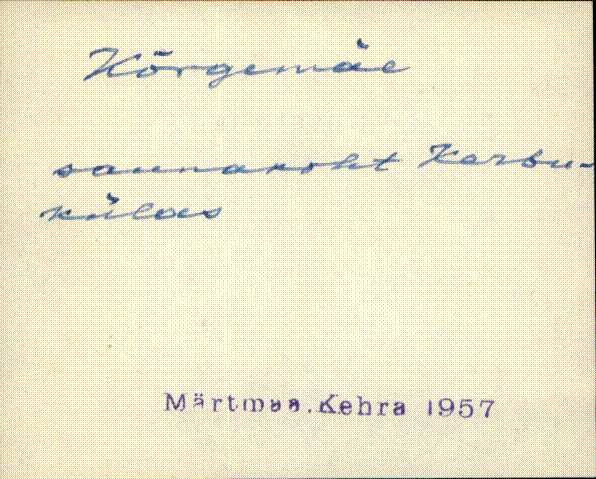 Kõrgemäe
saunakoht Karsu-
külas
Märtmaa.Kehra 1957